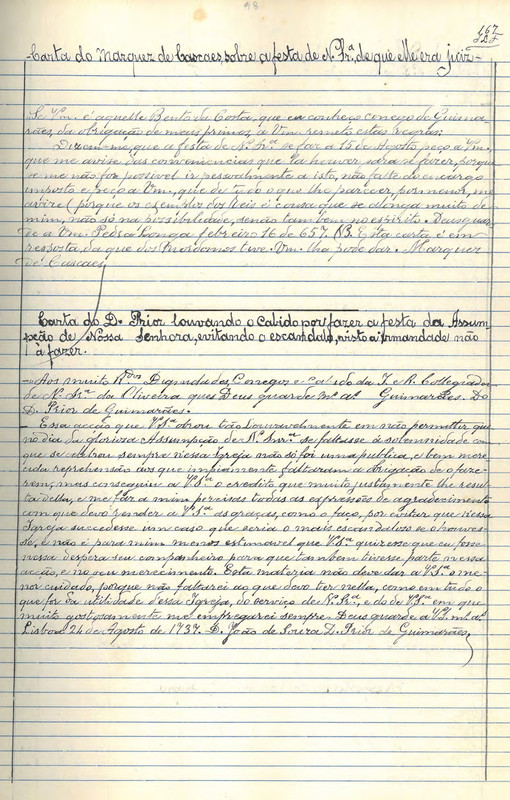 98
167
Carta do Marquez de Cascaes, sobre a festa de N. Srª. de que Me era juiz
Se Vm. é aquelle Bento da Costa, que eu conheço conego de Guima-
rães, da obrigação de meus primos, a Vm. remeto estas regras:
Dizem-me, que a festa de Nª. Srª. se faz a 15 de Agosto, peço a Vm.,
que me avise das conveniencias que lá houver para se fazer, porque
se me não for possivel ir pessoalmente a isto, não falte do encargo
imposto e peço a Vm., que de tudo o que lhe parecer, por menor, me
avize (porque os exemplos dos Reis é cousa que se alonga muito de
mim, não só na possibilidade, senão tambem no espirito. Deus guar-
de a Vm. Pedra Longa febreiro 16 de 657. N.B. Esta carta é em
resposta da que dos Mordomos tive. Vm. lha pode dar. Marquez
de Cascaes
Carta do D. Prior louvando o Cabido por fazer a festa da Assum-
pção de Nossa Senhora, evitando o escandalo, visto a irmandade não
a fazer.
Aos muito Rdos Dignidades Conegos e Cabido da I. e R. Collegiada
de N. Srª. da Oliveira que Deus guarde mᵗ. aˢ. Guimarães. Do
D. Prior de Guimarães.
Essa acção que Vª. Sª. obrou tão louvavelmente em não permittir que
no dia da gloriosa Assumpção de Nª. Snrª. se faltasse á solemnidade com
que se obrou sempre n'essa Igreja não só foi uma publica, e bem mere-
cida reprehensão aos que impiamente faltaram á obrigação de o faze-
rem, mas conseguiu a Vª. Sª. o credito que muito justamente lhe resul-
ta della, e me faz a mim precisas todas as expressões de agradecimento
com que devo render a Vª. Sª. as graças, como o faço, por evitar que n'essa
Igreja succedesse um caso que seria o mais escandaloso se o houves-
se, e não é para mim menos estimavel que Vª. Sª. quizesse que eu fosse
nessa despeza seu companheiro para que tambem tivesse parte nessa
acção, e no seu merecimento. Esta materia não deve dar a Vª. Sª. o me-
nor cuidado, porque não faltarei ao que devo ter nella, como em tudo o
que for da utilidade d'essa Igreja, do serviço de Nª. Srª. e do de Vª. Sª. em que
muito gostosamente me empregarei sempre. Deus guarde a Vª. S. m. aˢ.
Lisboa 24 de Agosto de 1737. D. João de Souza D. Prior de Guimarães